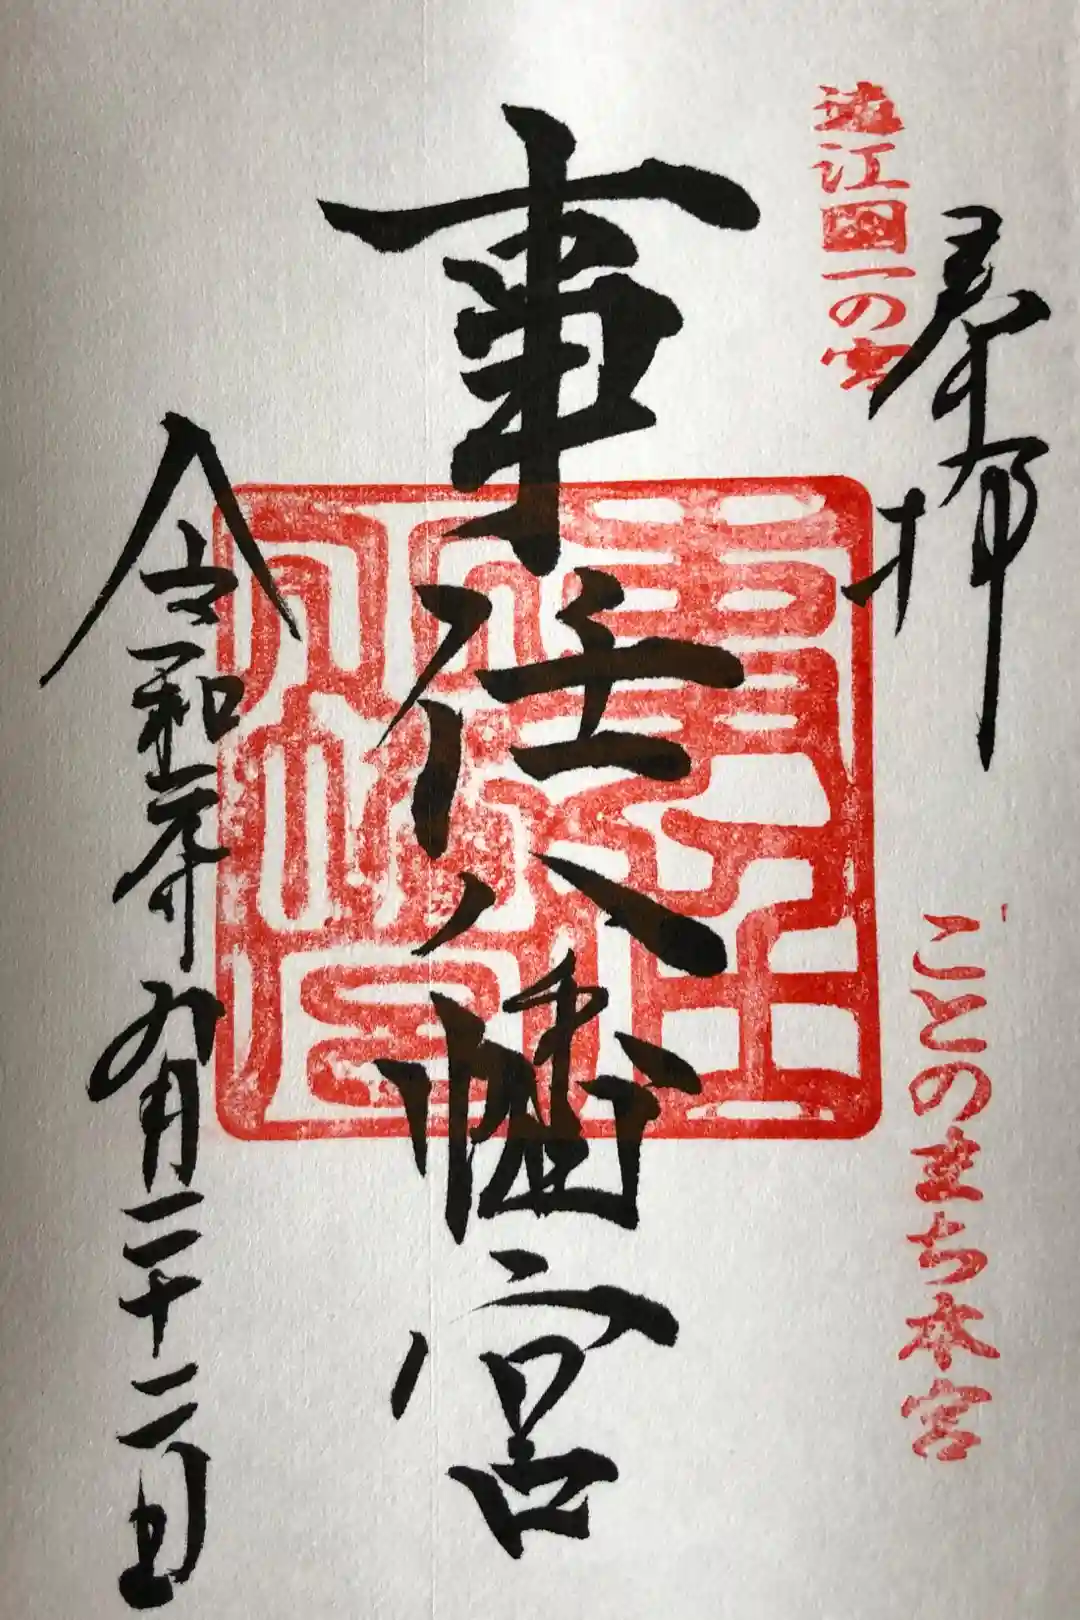 奉拝
遠江国一の宮
ごとのまち本宮
事任八幡宮
令和元年九月二十二日